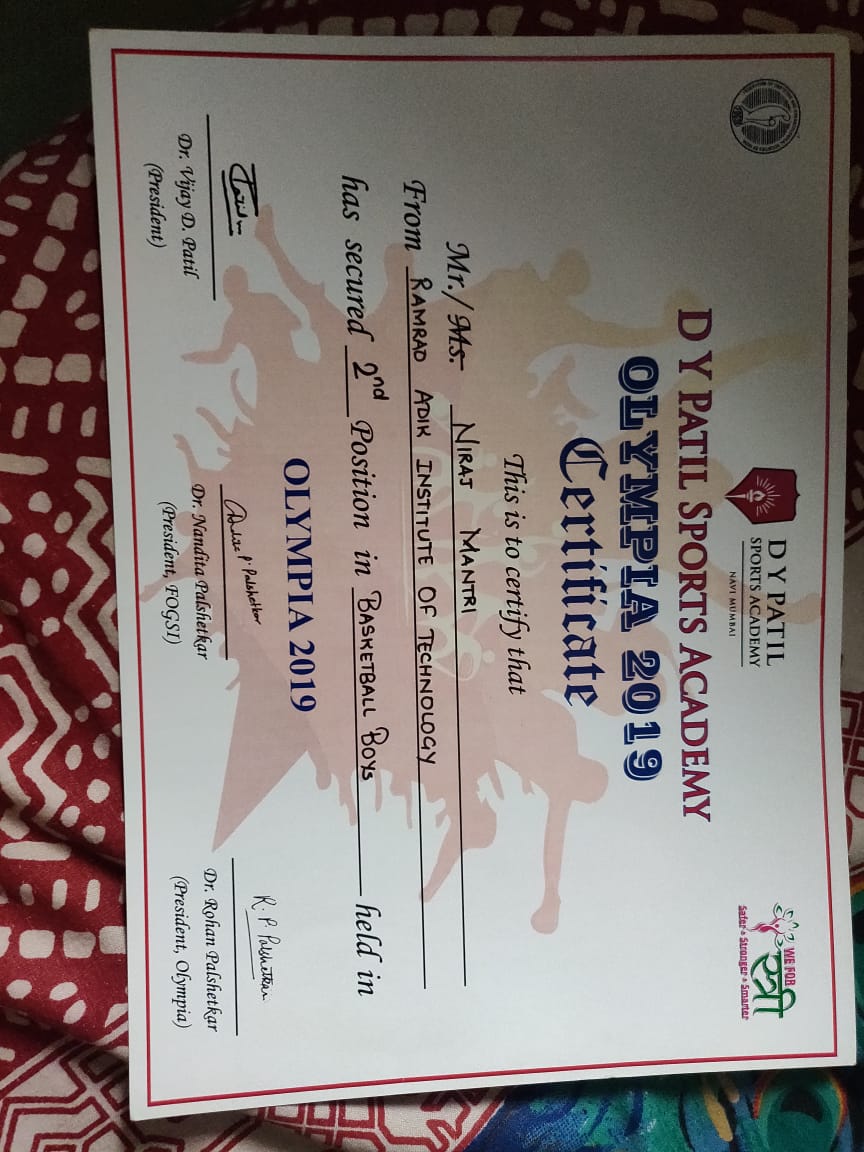 D Y PATIL
SPORTS ACADEMY
NAVI MUMBAI
WE FOR
स्त्री
Safer • Stronger • Smarter
D Y PATIL SPORTS ACADEMY
OLYMPIA 2019
Certificate
This is to certify that
Mr./Ms. NIRAJ MANTRI
From RAMRAO ADIK INSTITUTE OF TECHNOLOGY
has secured 2nd Position in BASKETBALL BOYS held in
OLYMPIA 2019
R. P. Palshetkar
Dr. Vijay D. Patil
(President)
Dr. Nandita Palshetkar
(President, FOGSI)
Dr. Rohan Palshetkar
(President, Olympia)